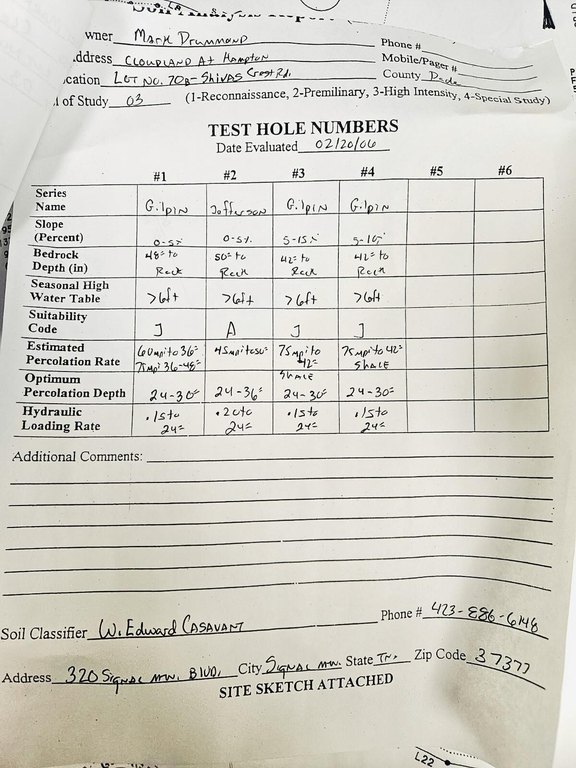 Soil Analysis Report
wner Mark Drummond Phone #
ddress Cloudland At Hampton Mobile/Pager #
cation Lot No. 70B-Shivas Crest Rd. County Dade
l of Study 03 (1-Reconnaissance, 2-Premilinary, 3-High Intensity, 4-Special Study)
TEST HOLE NUMBERS
Date Evaluated 02/20/06
#1 #2 #3 #4 #5 #6
Series Name Gilpin Jefferson Gilpin Gilpin
Slope (Percent) 0-5% 0-5% 5-15% 5-10%
Bedrock Depth (in) 48" to Rock 50" to Rock 42" to Rock 42" to Rock
Seasonal High Water Table >6ft >6ft >6ft >6ft
Suitability Code J A J J
Estimated Percolation Rate 60mpi to 36" 75mpi 36-48" 45mpi to 50" 75mpi to 42" Shale 75mpi to 42" Shale
Optimum Percolation Depth 24-30" 24-36" 24-30" 24-30"
Hydraulic Loading Rate .15 to 24" .20 to 24" .15 to 24" .15 to 24"
Additional Comments:
Soil Classifier W. Edward Casavant Phone # 423-886-6148
Address 320 Signal Mtn. Blvd, City Signal Mtn. State Tn. Zip Code 37377
SITE SKETCH ATTACHED
L22